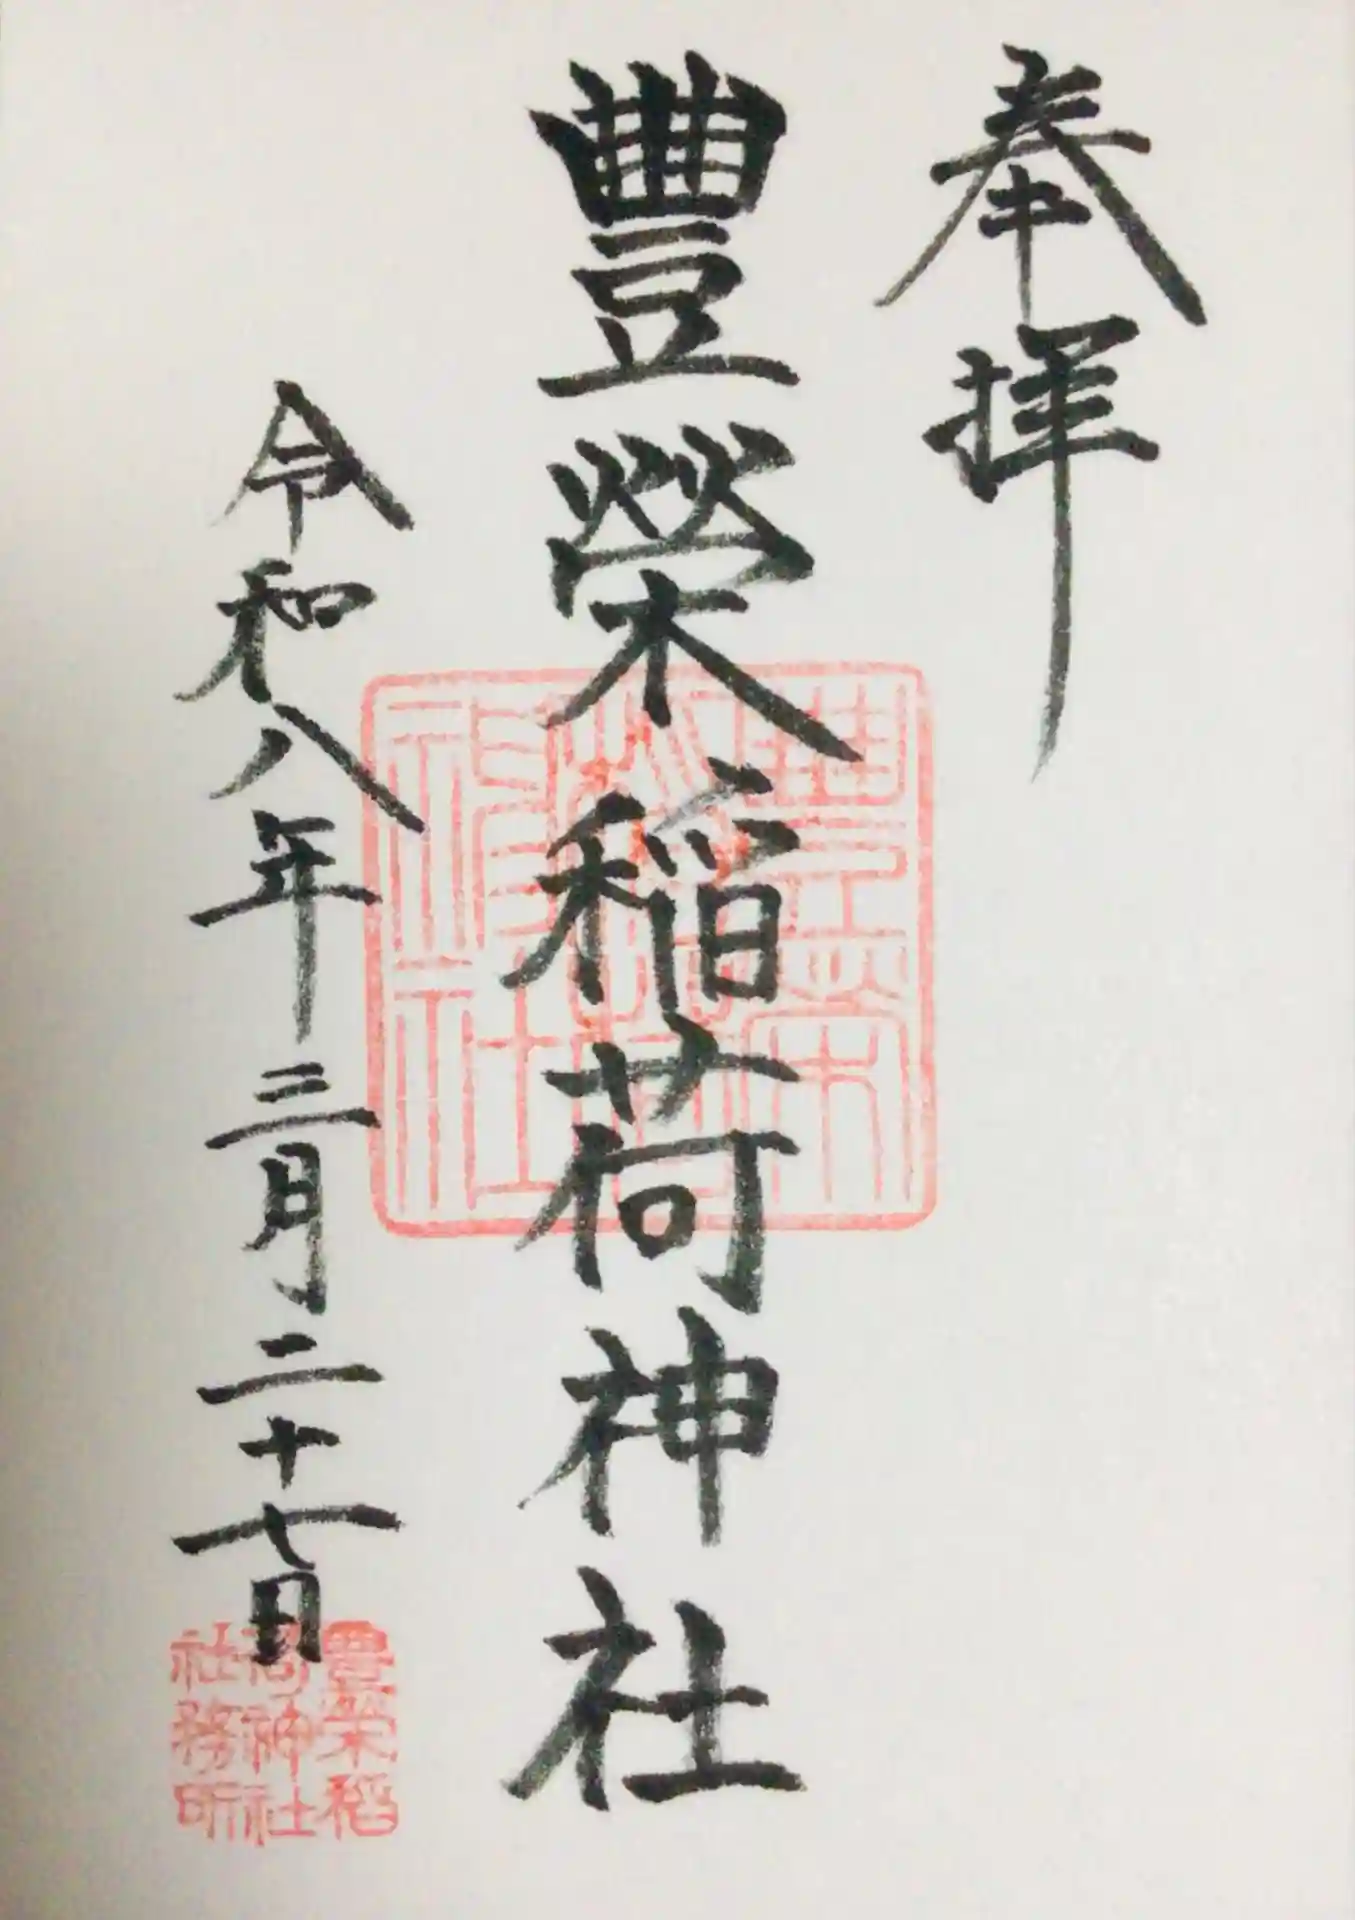 奉拝
豐榮稲荷神社
令和八年三月二十七日
豊榮稲荷神社
豊榮稻
荷神社
社務所